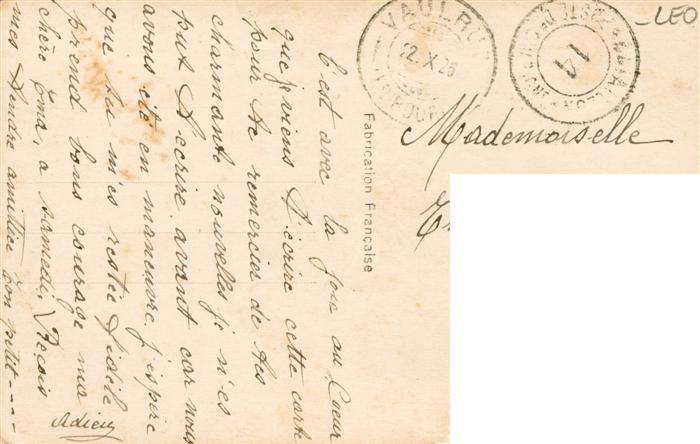 C'est avec la joie au Coeur
que je viens t'écrire cette carte
pour te remercier de tes
charmante nouvelles je n'es
put t'écrire avant car nous
avons été en manœuvre. j'espère
que tu m'es restée fidèle
prend bons courage ma
chère Ema, a samedi, Reçois
mes tendre amitiés ton petit----
Adieu
Fabrication Française
VAULRU
22. X 25
14
LEO
Mademoiselle